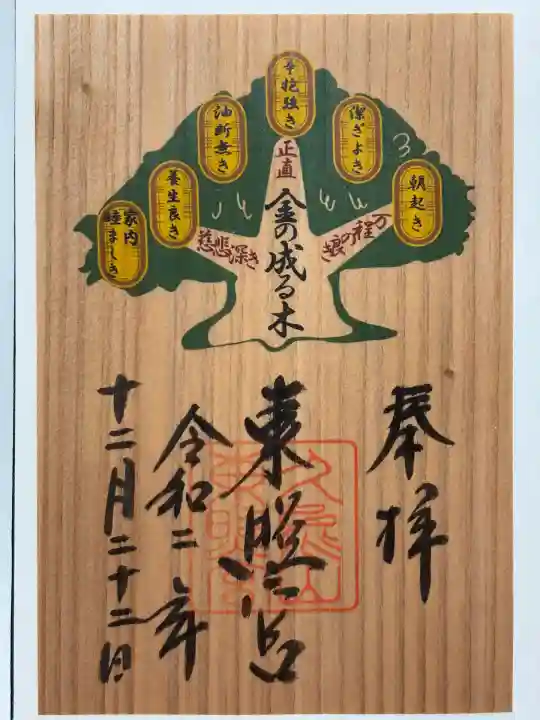 朝起き
潔ぎよき
辛抱強き
油断無き
養生良き
家内
睦ましき
万程の
良き
正直
慈悲深き
金の成る木
奉拝
久能山
東照宮
東照宮
令和二年
十二月二十二日